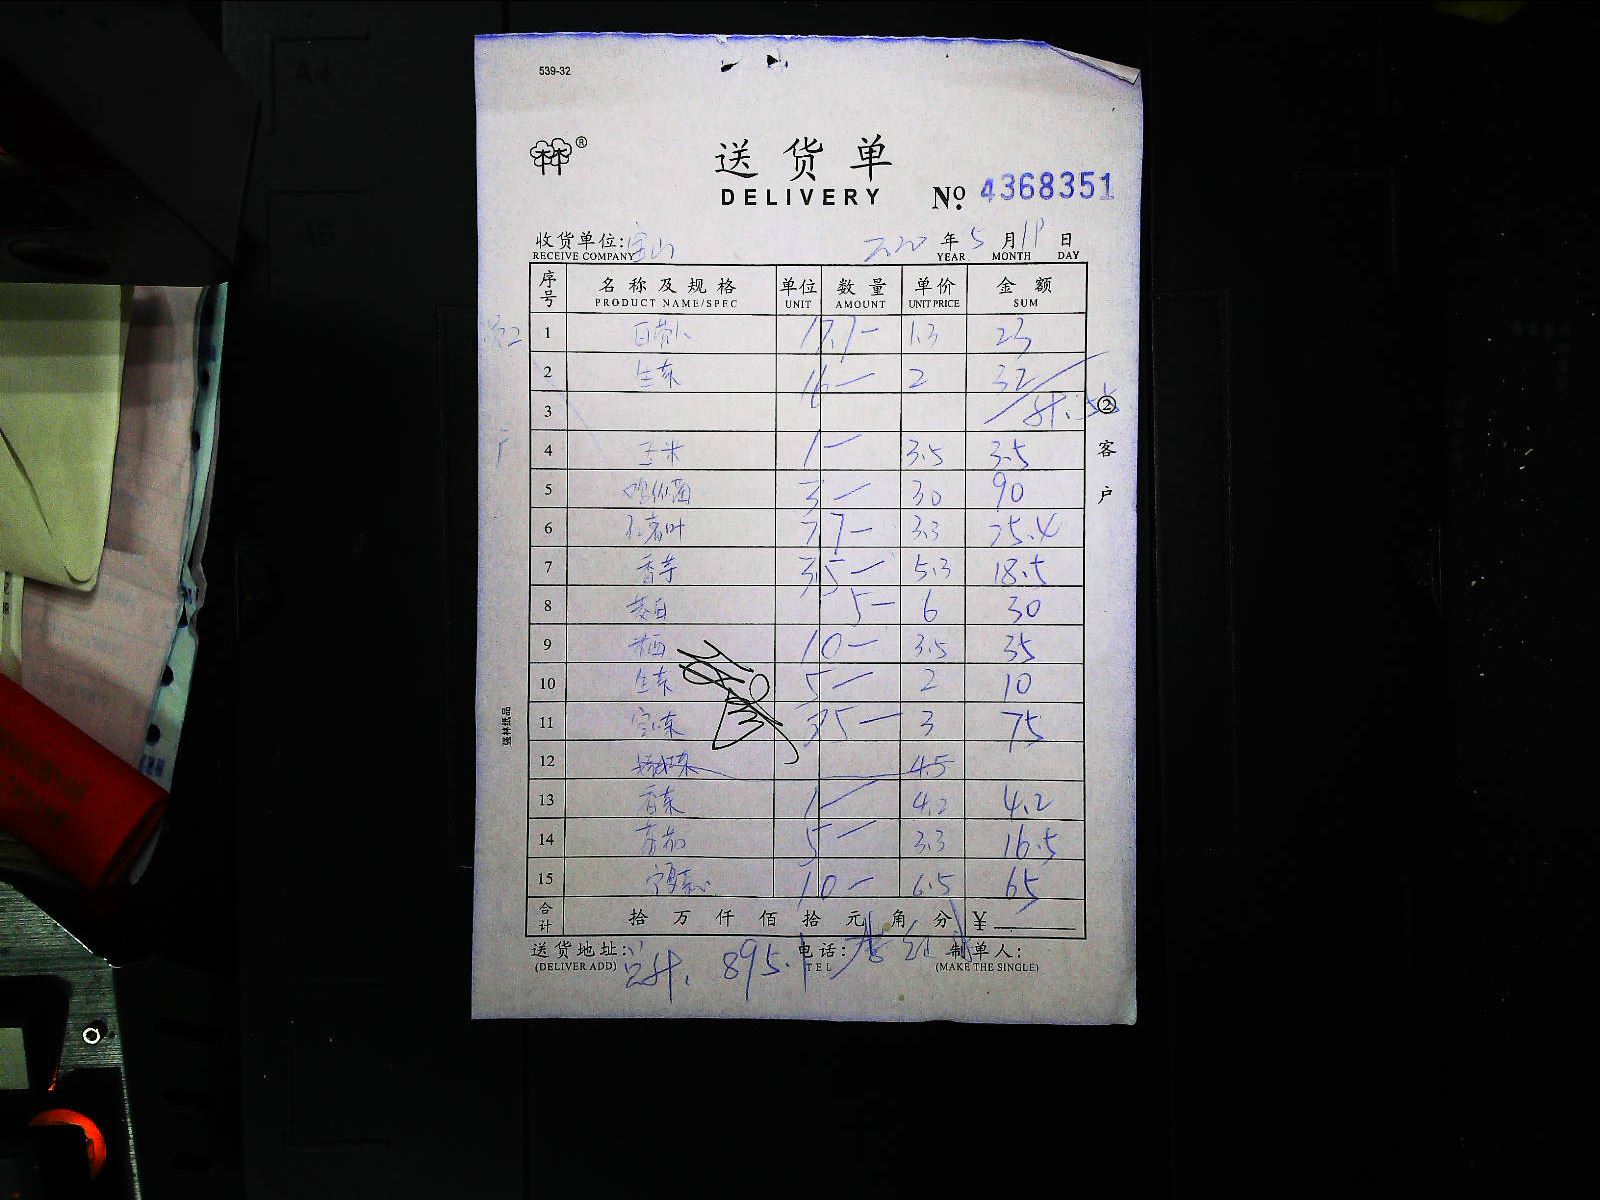 539-32
送货单
DELIVERY
No. 4368351
收货单位: 宝山 2020 年 5 月 19 日
RECEIVE COMPANY YEAR MONTH DAY
序号 名称及规格 单位 数量 单价 金额
PRODUCT NAME/SPEC UNIT AMOUNT UNIT PRICE SUM
1 白萝卜 17.7 1.3 23
2 生菜 16 2 32
3 计.55
4 玉米 1 3.5 3.5
5 30 90
6 7.7 3.3 25.4
7 香芋 3.5 5.3 18.5
8 茭白 5 6 30
9 10 3.5 35
10 生菜 5 2 10
11 3 75
12 4.5
13 香菜 1 4.2 4.2
14 5 3.3 16.5
15 10 6.5 65
合计 拾 万 仟 佰 拾 元 角 分 ¥
送货地址: 电话: 制单人:
(DELIVER ADD) TEL (MAKE THE SINGLE)
总计. 895.1
② 客户
强林纸品